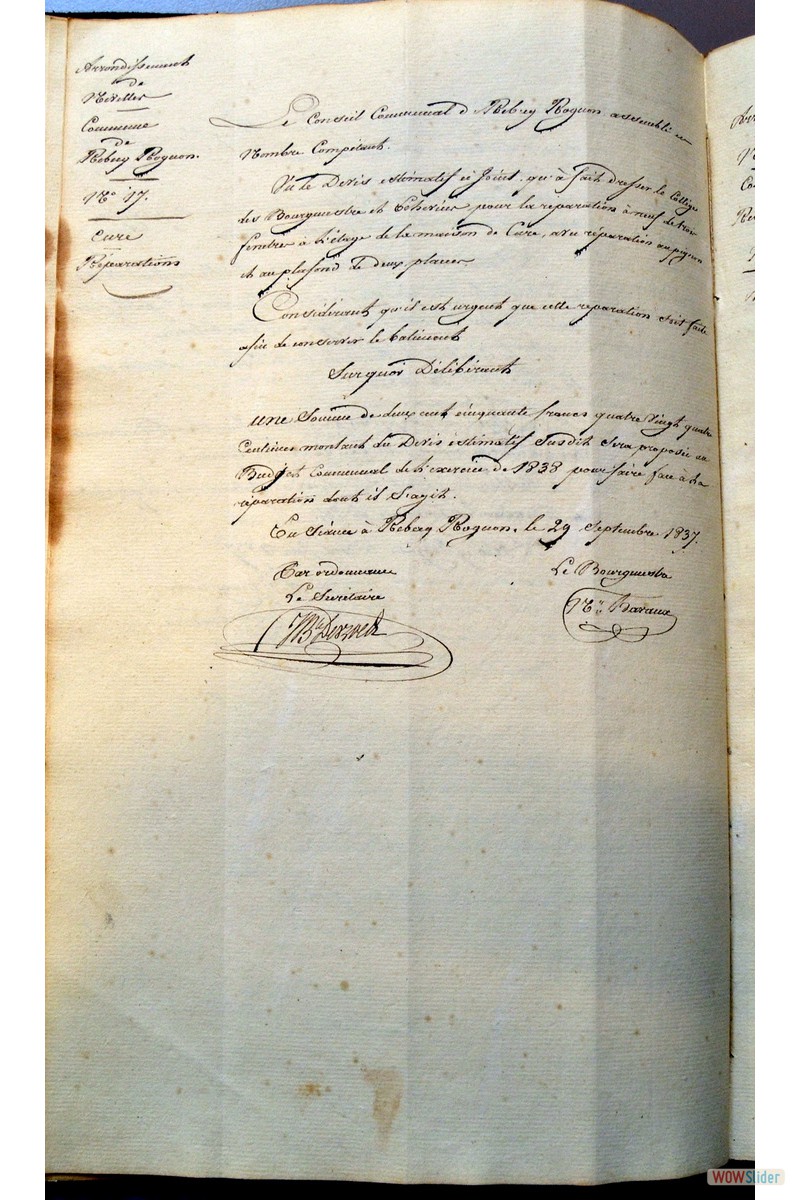 Arrondissement
de
Nivelles
Commune
de
Rebecq Rognon.
No 17.
Cure
Réparations
Le Conseil Communal d Rebecq Rognon assemblé en
Nombre Compétant.
Vu le Devis estimatif ci Joint, qu'à fait dresser le Collège
des Bourgmestre et Echevins pour la réparation à neuf de trois
fenêtres à l'étage de la maison de Cure, avec réparation au pignon
et au plafond de deux places.
Considérant qu'il est urgent que cette réparation soit faite
afin de conserver le batiment
Sur quoi Délibérant
une Somme de deux cent cinquante francs quatre vingt quatre
Centimes montant du Devis estimatif Susdit Sera proposée au
Budget Communal de l'exercice de 1838 pour faire face à la
réparation dont il S'agit.
En Séance à Rebecq Rognon, le 29 Septembre 1837.
Par ordonnance
Le Bourgmestre
Le Secrétaire
WOWSlider